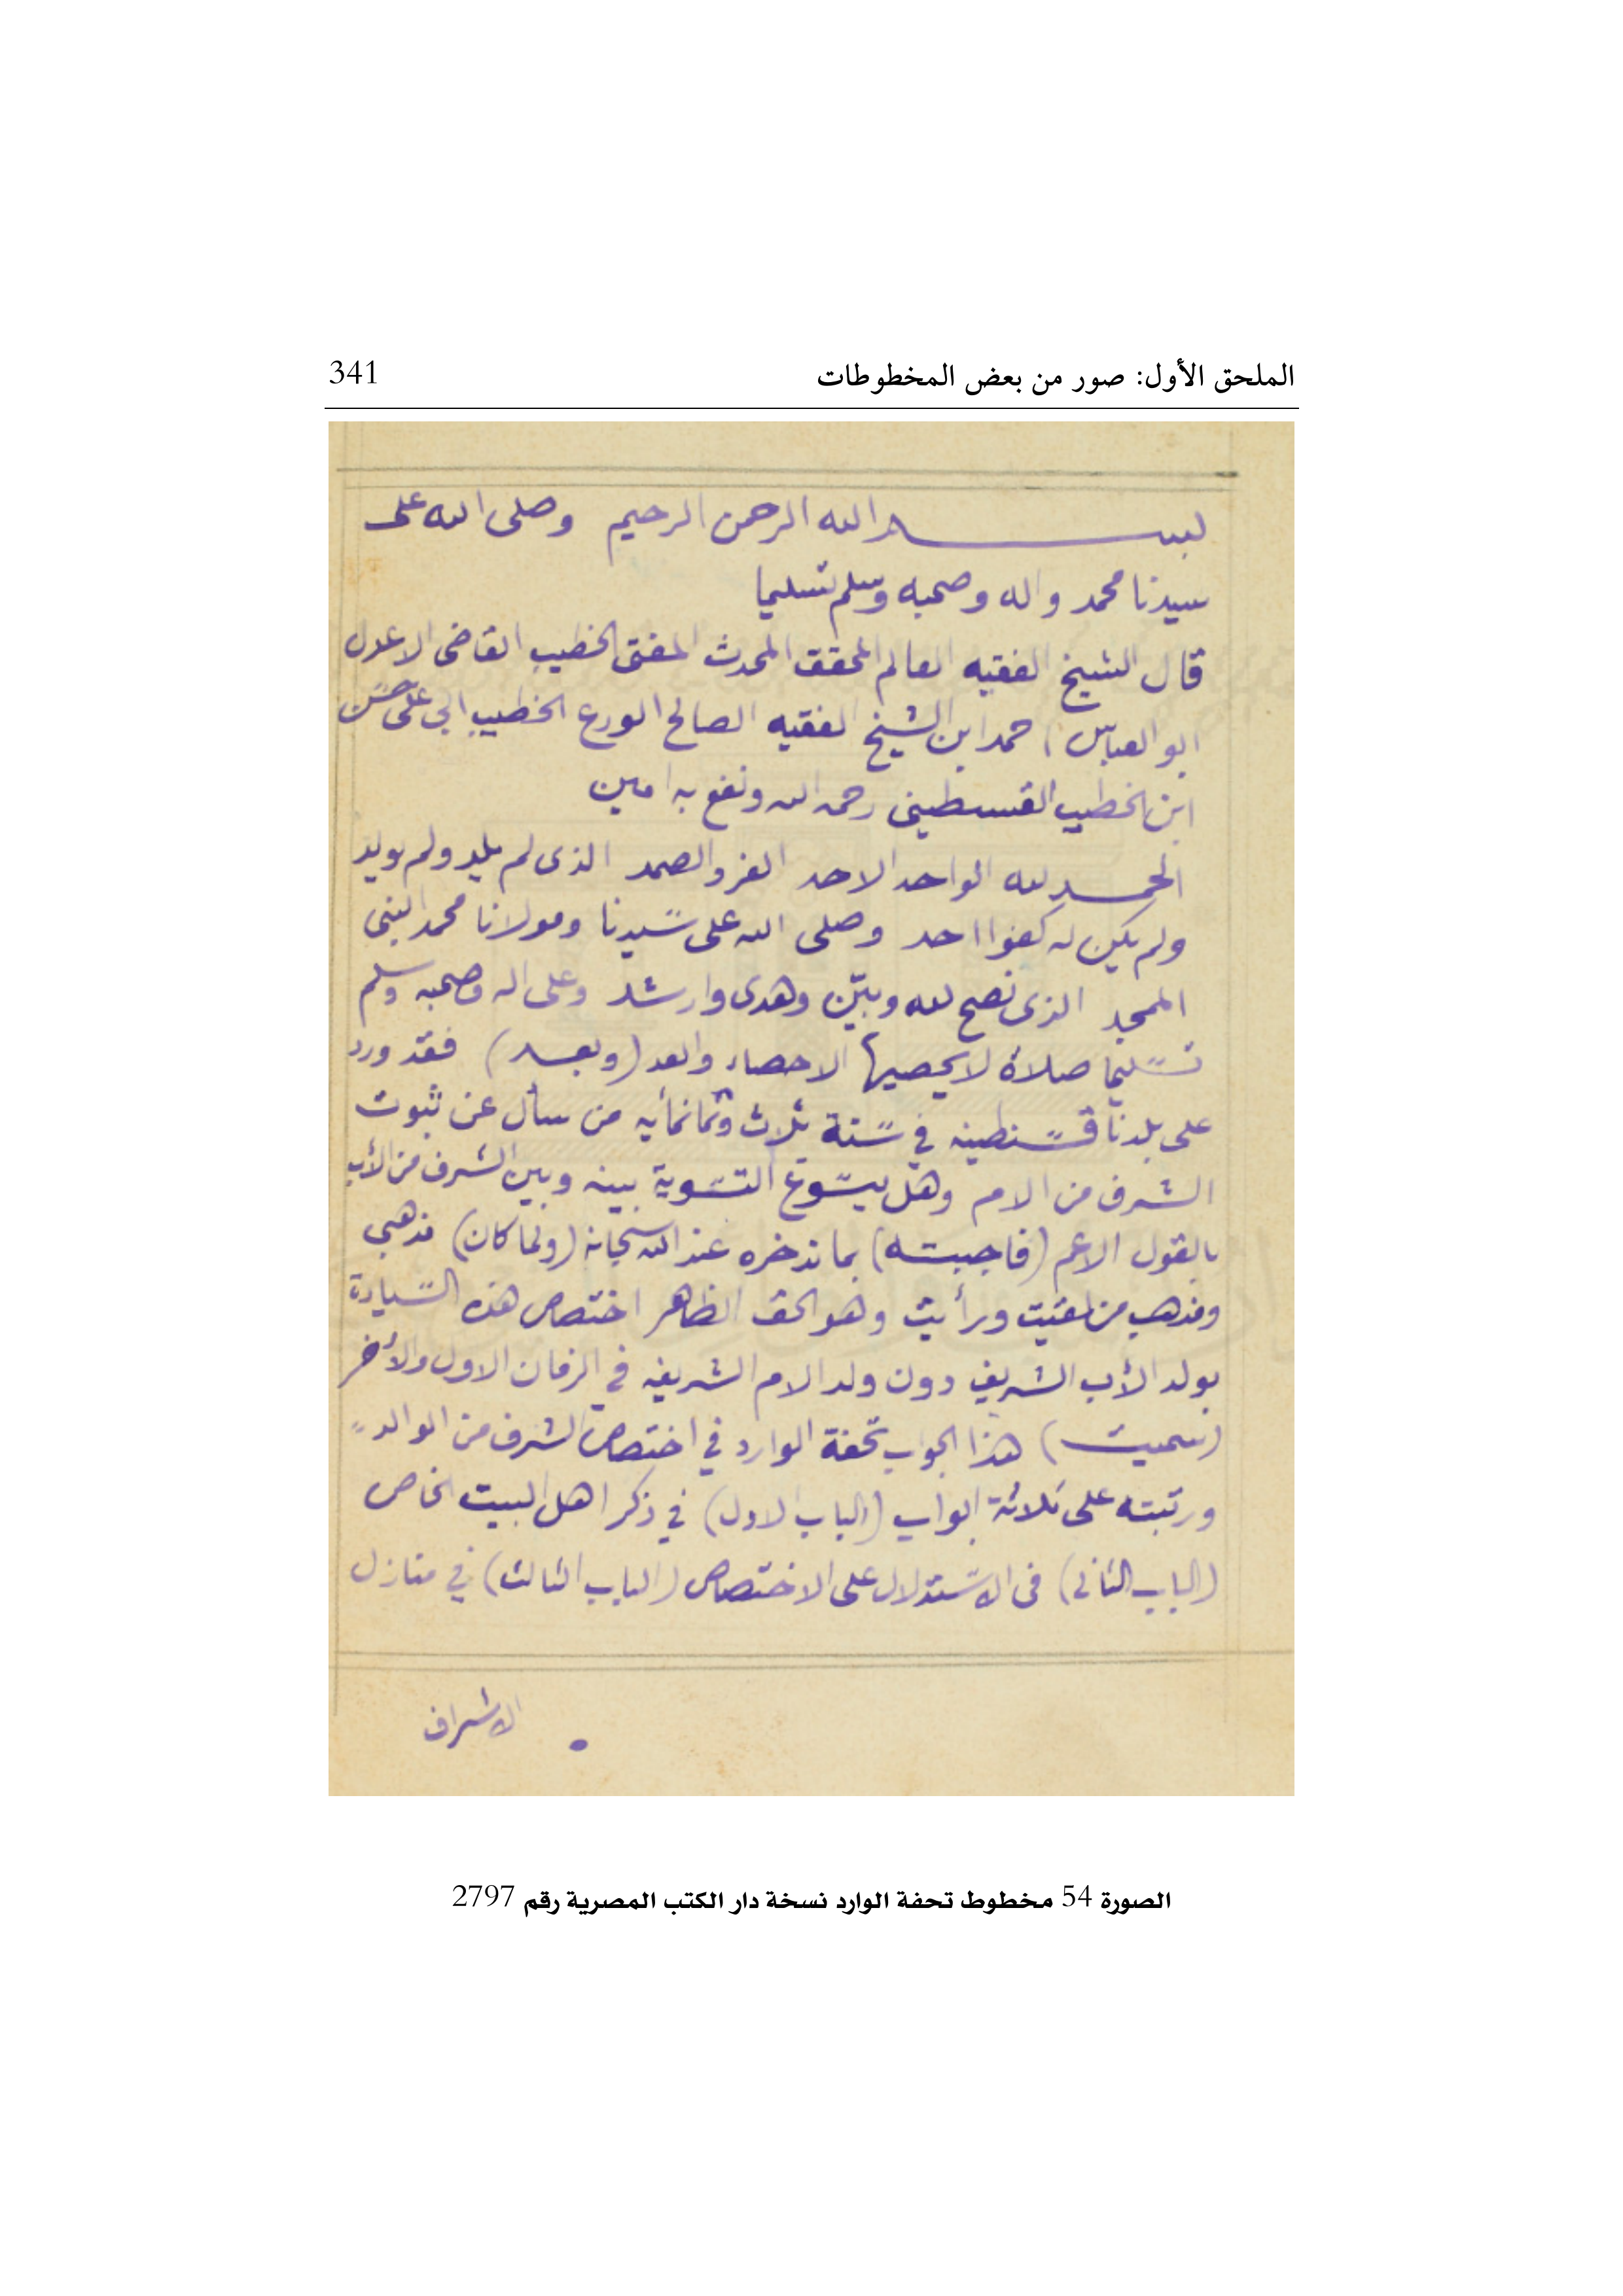 الملحق الأول: صور من بعض المخطوطات 341
بسم الله الرحمن الرحيم وصلى الله على
سيدنا محمد واله وصحبه وسلم تسليما
قال الشيخ الفقيه العالم المحقق المحدث المفتى الخطيب القاضى الاعدل
ابو العباس احمد ابن الشيخ الفقيه الصالح الورع الخطيب ابي على حسن
ابن الخطيب القسطينى رحمه الله ونفع به امين
الحمد لله الواحد الاحد الفرد الصمد الذى لم يلد ولم يولد
ولم يكن له كفوا احد وصلى الله على سيدنا ومولانا محمد النبى
الممجد الذى نصح لله وبيّن وهدى وارشد وعلى اله وصحبه وسلم
تسليما صلاة لا يحصيها الاحصاء والعد (وبعد) فقد ورد
على بلدنا قسنطينه في سنة ثلاث وثمانمأيه من سأل عن ثبوت
الشرف من الام وهل يسوغ التسوية بينه وبين الشرف من الأب
بالقول الاعم (فاجبته) بما ندخره عند الله سبحانه (ولما كان) مذهبى
ومذهب من لقيت ورأيت وهو الحق الظاهر اختصاص هذه السيادة
بولد الأب الشريف دون ولد الام الشريفه في الزمان الاول والأخر
(سميت) هذا الجواب تحفة الوارد في اختصاص الشرف من الوالد
ورتبته على ثلاثة ابواب (الباب الاول) في ذكر اهل البيت الخاص
(الباب الثانى) فى الاستدلال على الاختصاص (الباب الثالث) في منازل
الاشراف
الصورة 54 مخطوط تحفة الوارد نسخة دار الكتب المصرية رقم 2797